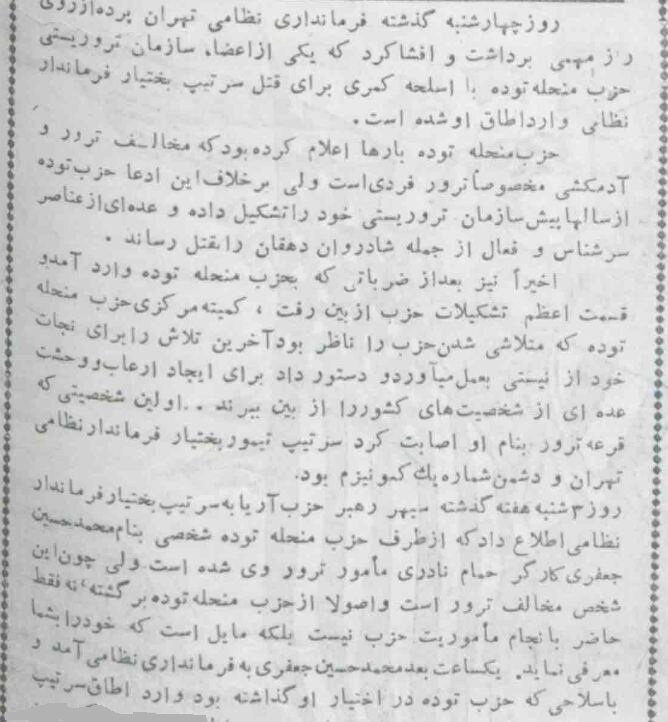 روز چهارشنبه گذشته فرمانداری نظامی تهران پرده از روی
راز مهمی برداشت و افشا کرد که یکی از اعضاء سازمان تروریستی
حزب منحله توده با اسلحه کمری برای قتل سرتیپ بختیار فرماندار
نظامی وارد اطاق او شده است.
حزب منحله توده بارها اعلام کرده بود که مخالف ترور و
آدمکشی مخصوصاً ترور فردی است ولی برخلاف این ادعا حزب توده
از سالها پیش سازمان تروریستی خود را تشکیل داده و عده‌ای از عناصر
سرشناس و فعال از جمله شادروان دهقان را بقتل رساند .
اخیراً نیز بعد از ضرباتی که بحزب منحله توده وارد آمد و
قسمت اعظم تشکیلات حزب از بین رفت ، کمیته مرکزی حزب منحله
توده که متلاشی شدن حزب را ناظر بود آخرین تلاش را برای نجات
خود از نیستی بعمل میآورد و دستور داد برای ایجاد ارعاب و وحشت
عده ای از شخصیت های کشور را از بین ببرند . . اولین شخصیتی که
قرعه ترور بنام او اصابت کرد سرتیپ تیمور بختیار فرماندار نظامی
تهران و دشمن شماره یك کمونیزم بود.
روز ۳ شنبه هفته گذشته سپهر رهبر حزب آریا به سرتیپ بختیار فرماندار
نظامی اطلاع داد که از طرف حزب منحله توده شخصی بنام محمد حسین
جعفری کارگر حمام نادری مأمور ترور وی شده است ولی چون این
شخص مخالف ترور است و اصولا از حزب منحله توده برگشته ، نه فقط
حاضر بانجام مأموریت حزب نیست بلکه مایل است که خود را بشما
معرفی نماید. یکساعت بعد محمد حسین جعفری به فرمانداری نظامی آمد و
با سلاحی که حزب توده در اختیار او گذاشته بود وارد اطاق سرتیپ